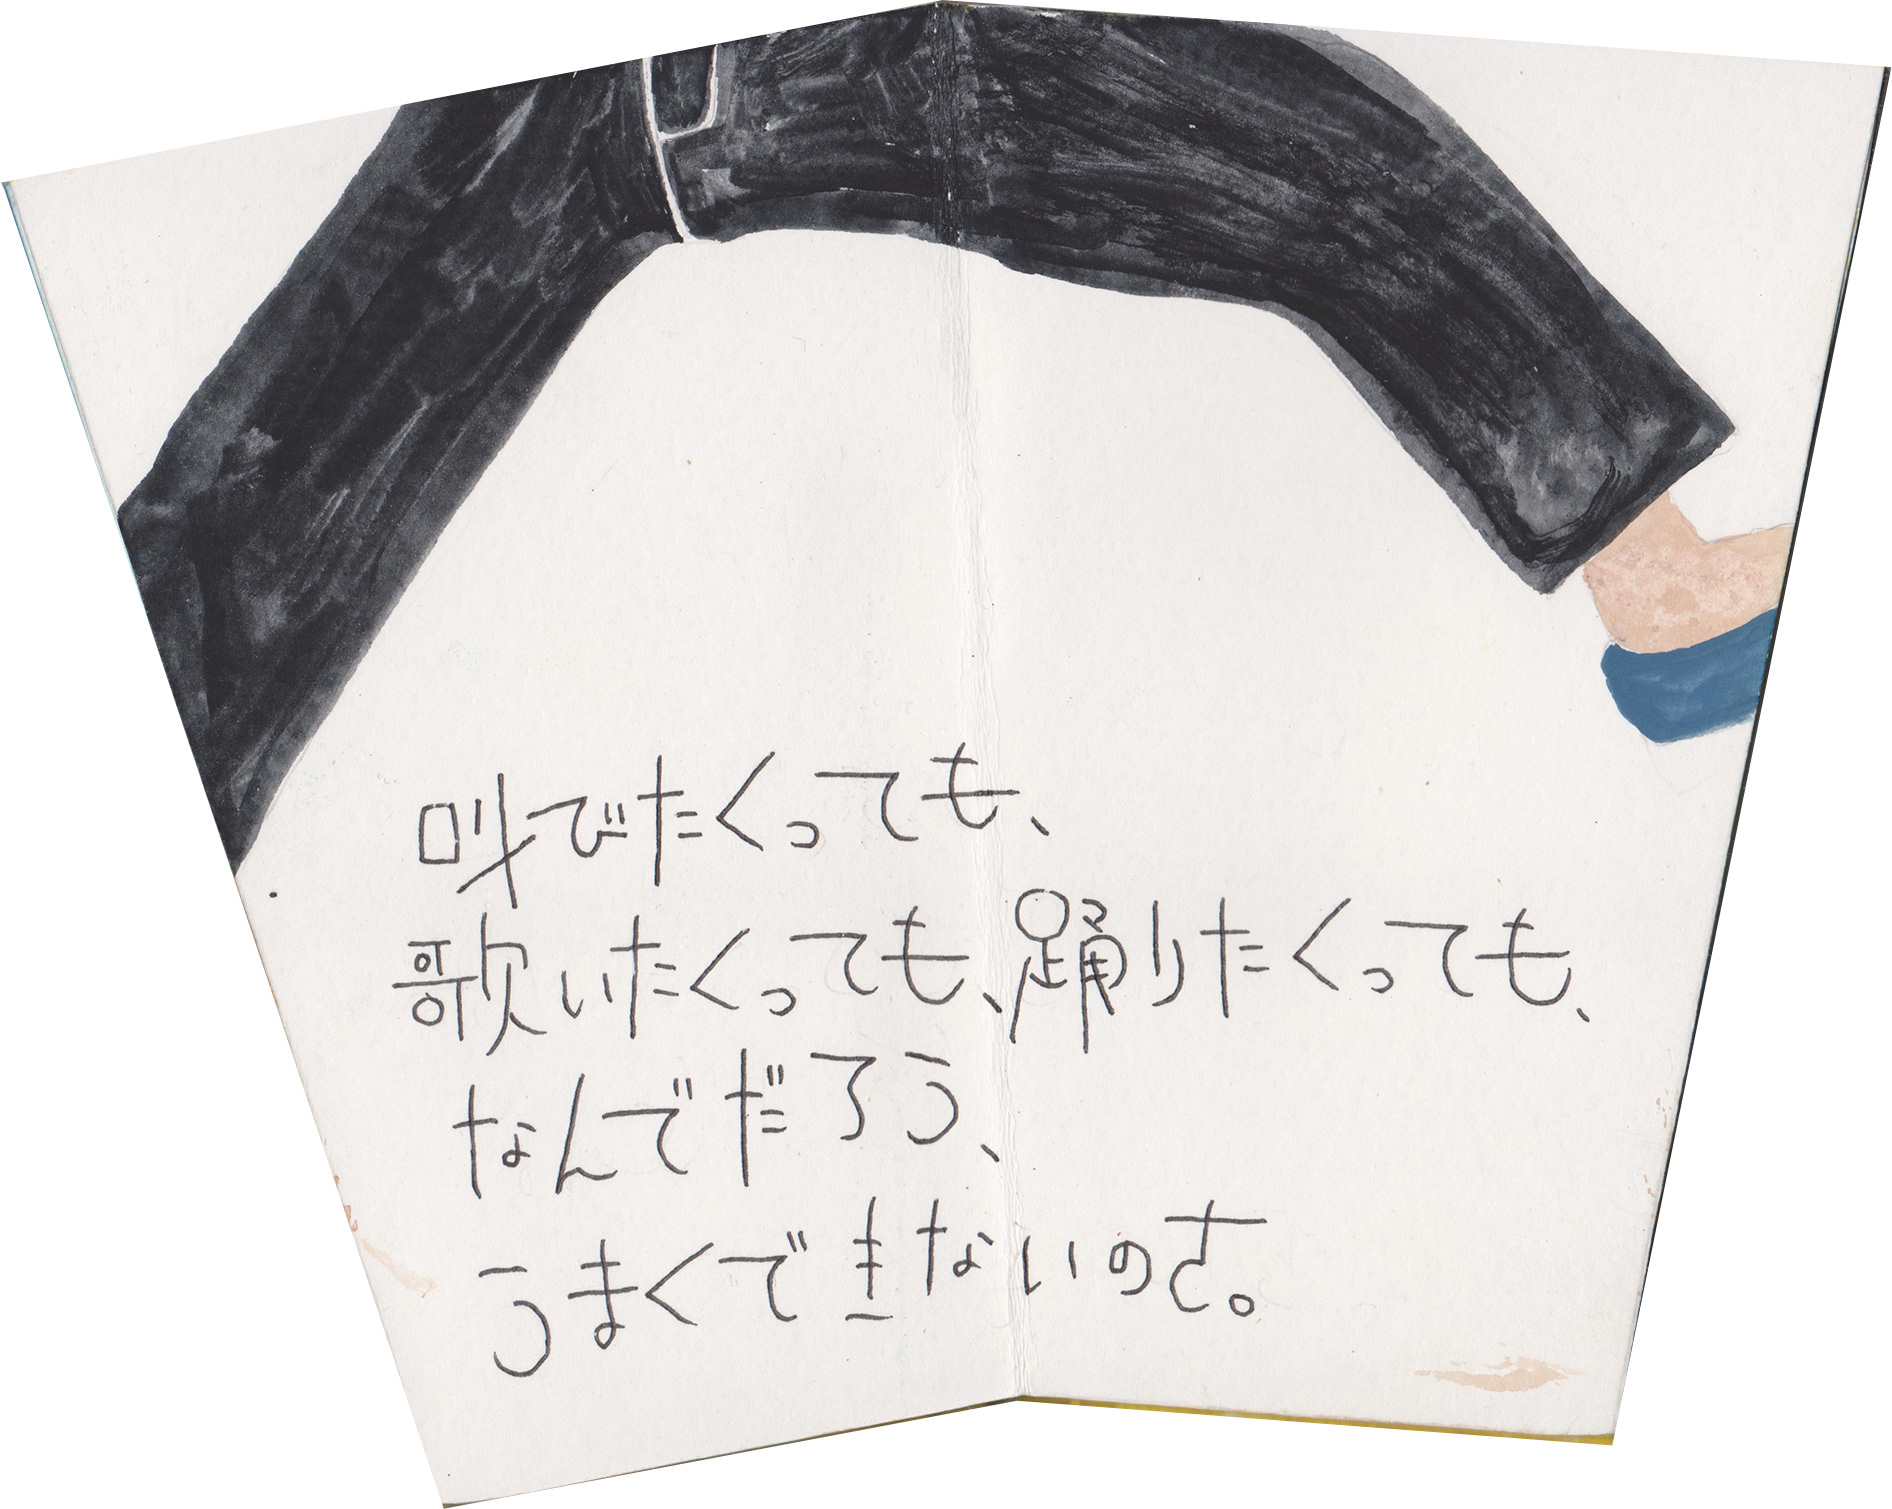 叫びたくっても、
歌いたくっても、踊りたくっても、
なんでだろう、
うまくできないのさ。